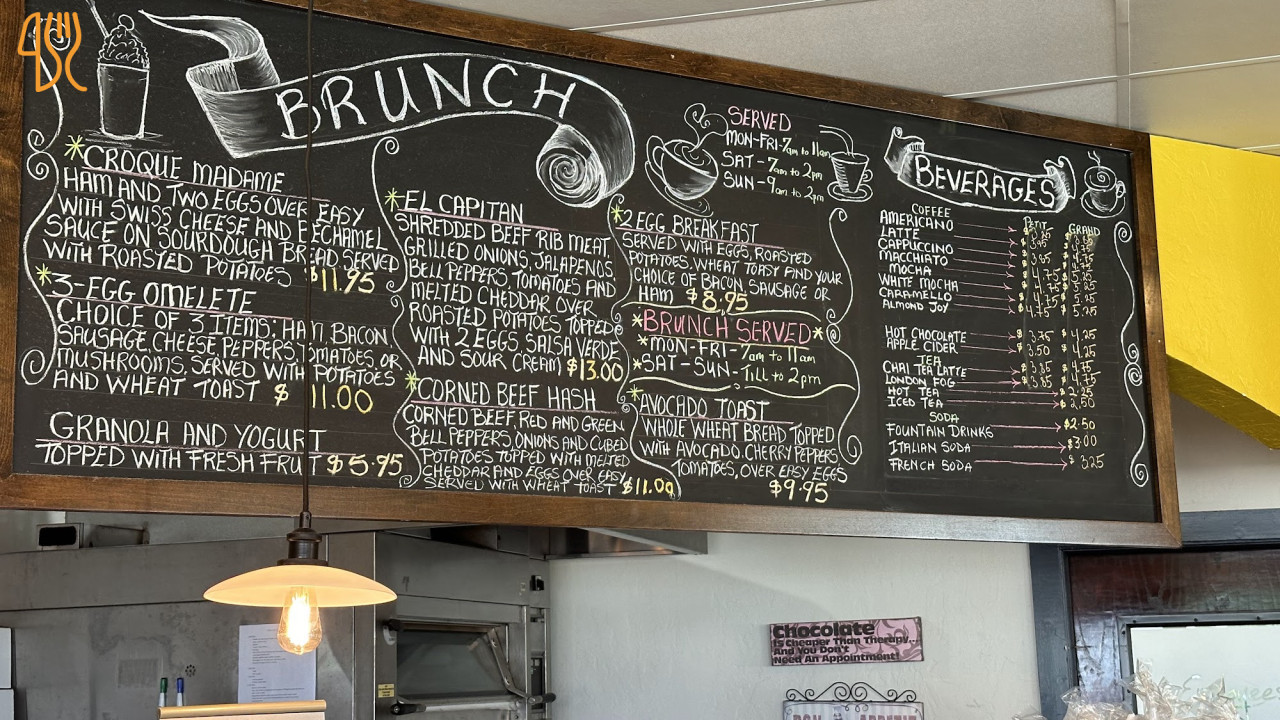 BRUNCH
*CROQUE MADAME
HAM AND TWO EGGS OVER EASY
WITH SWISS CHEESE AND BECHAMEL
SAUCE ON SOURDOUGH BREAD SERVED
WITH ROASTED POTATOES $11.95
*3-EGG OMELETE
CHOICE OF 3 ITEMS: HAM, BACON
SAUSAGE, CHEESE PEPPERS, TOMATOES, OR
MUSHROOMS, SERVED WITH POTATOES
AND WHEAT TOAST $11.00
GRANOLA AND YOGURT
TOPPED WITH FRESH FRUIT $5.95
*EL CAPITAN
SHREDDED BEEF RIB MEAT,
GRILLED ONIONS, JALAPENOS,
BELL PEPPERS, TOMATOES AND
MELTED CHEDDAR OVER
ROASTED POTATOES TOPPED
WITH 2 EGGS, SALSA VERDE
AND SOUR CREAM $13.00
*CORNED BEEF HASH
CORNED BEEF, RED AND GREEN
BELL PEPPERS, ONIONS AND CUBED
POTATOES TOPPED WITH MELTED
CHEDDAR AND EGGS OVER EASY
SERVED WITH WHEAT TOAST $11.00
SERVED
MON-FRI-7am to 11am
SAT-7am to 2pm
SUN-9am to 2pm
*2 EGG BREAKFAST
SERVED WITH EGGS, ROASTED
POTATOES, WHEAT TOAST AND YOUR
CHOICE OF BACON, SAUSAGE OR
HAM $8.95
*BRUNCH SERVED*
*MON-FRI-7am to 11am
*SAT-SUN-Till to 2pm
*AVOCADO TOAST
WHOLE WHEAT BREAD TOPPED
WITH AVOCADO, CHERRY PEPPERS
TOMATOES, OVER EASY EGGS
$9.95
BEVERAGES
COFFEE PETIT GRAND
AMERICANO
LATTE
CAPPUCCINO
MACCHIATO
MOCHA
WHITE MOCHA
CARAMELLO
ALMOND JOY $4.75 $5.25
HOT CHOCOLATE $3.75 $4.25
APPLE CIDER $3.50 $4.25
TEA
CHAI TEA LATTE
LONDON FOG $3.85 $4.75
HOT TEA $2.25
ICED TEA $2.50
SODA
FOUNTAIN DRINKS $2.50
ITALIAN SODA $3.00
FRENCH SODA $3.25
Chocolate
Is Cheaper Than Therapy...
And You Don't
Need An Appointment!
BON APPETIT